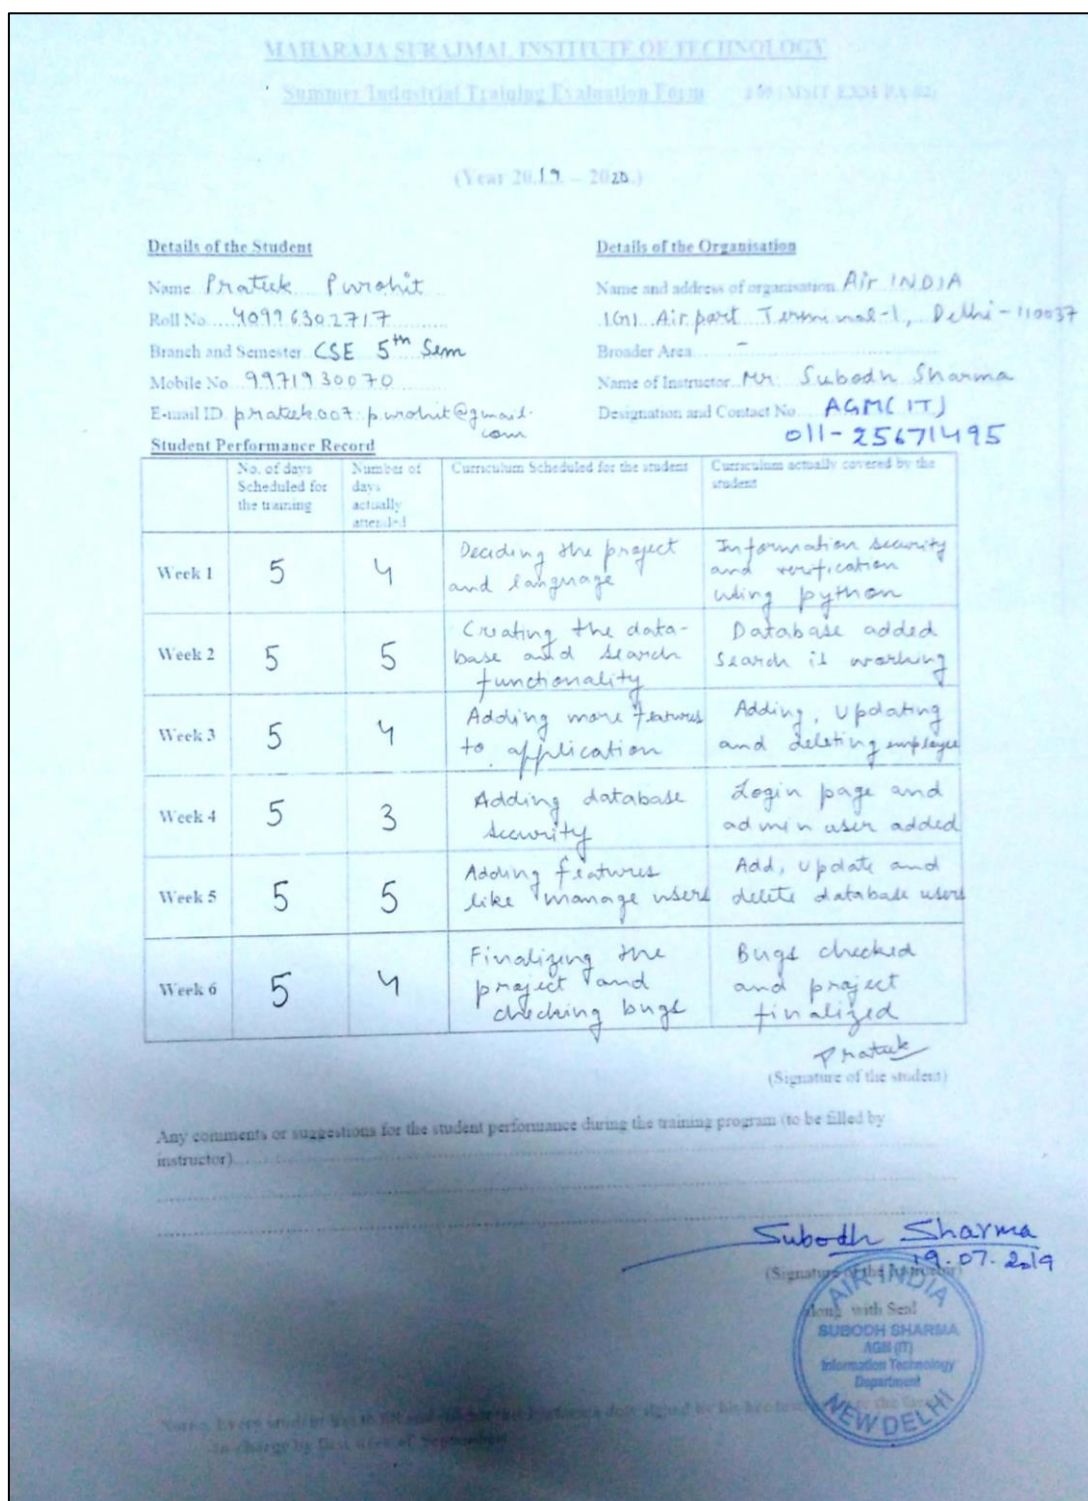 MAHARAJA SURAJMAL INSTITUTE OF TECHNOLOGY
Summer Industrial Training Evaluation Form
(Year 2019 – 2020.)
Details of the Student
Details of the Organisation
Name Prateek Purohit
Name and address of organisation Air INDIA
Roll No. 40996302717
IGI Airport Terminal-1, Delhi-110037
Branch and Semester CSE 5th Sem
Broader Area -
Mobile No 9971930070
Name of Instructor Mr. Subodh Sharma
E-mail ID prateek.007.purohit@gmail.
com
Designation and Contact No. AGM(IT)
011-25671495
Student Performance Record
No. of days
Scheduled for
the training
Number of
days
actually
attended
Curriculum Scheduled for the student
Curriculum actually covered by the
student
Week 1
5
4
Deciding the project
and language
Information security
and verification
using python
Week 2
5
5
Creating the data-
base and search
functionality
Database added
search is working
Week 3
5
4
Adding more features
to application
Adding, Updating
and deleting employee
Week 4
5
3
Adding database
security
Login page and
admin user added
Week 5
5
5
Adding features
like manage users
Add, update and
delete database users
Week 6
5
4
Finalizing the
project and
checking bugs
Bugs checked
and project
finalized
Prateek
(Signature of the student)
Any comments or suggestions for the student performance during the training program (to be filled by
instructor)
Subodh Sharma
19.07.2019
(Signature of the Instructor)
along with Seal
AIR INDIA
SUBODH SHARMA
AGM (IT)
Information Technology
Department
NEW DELHI
in-charge by first week of September